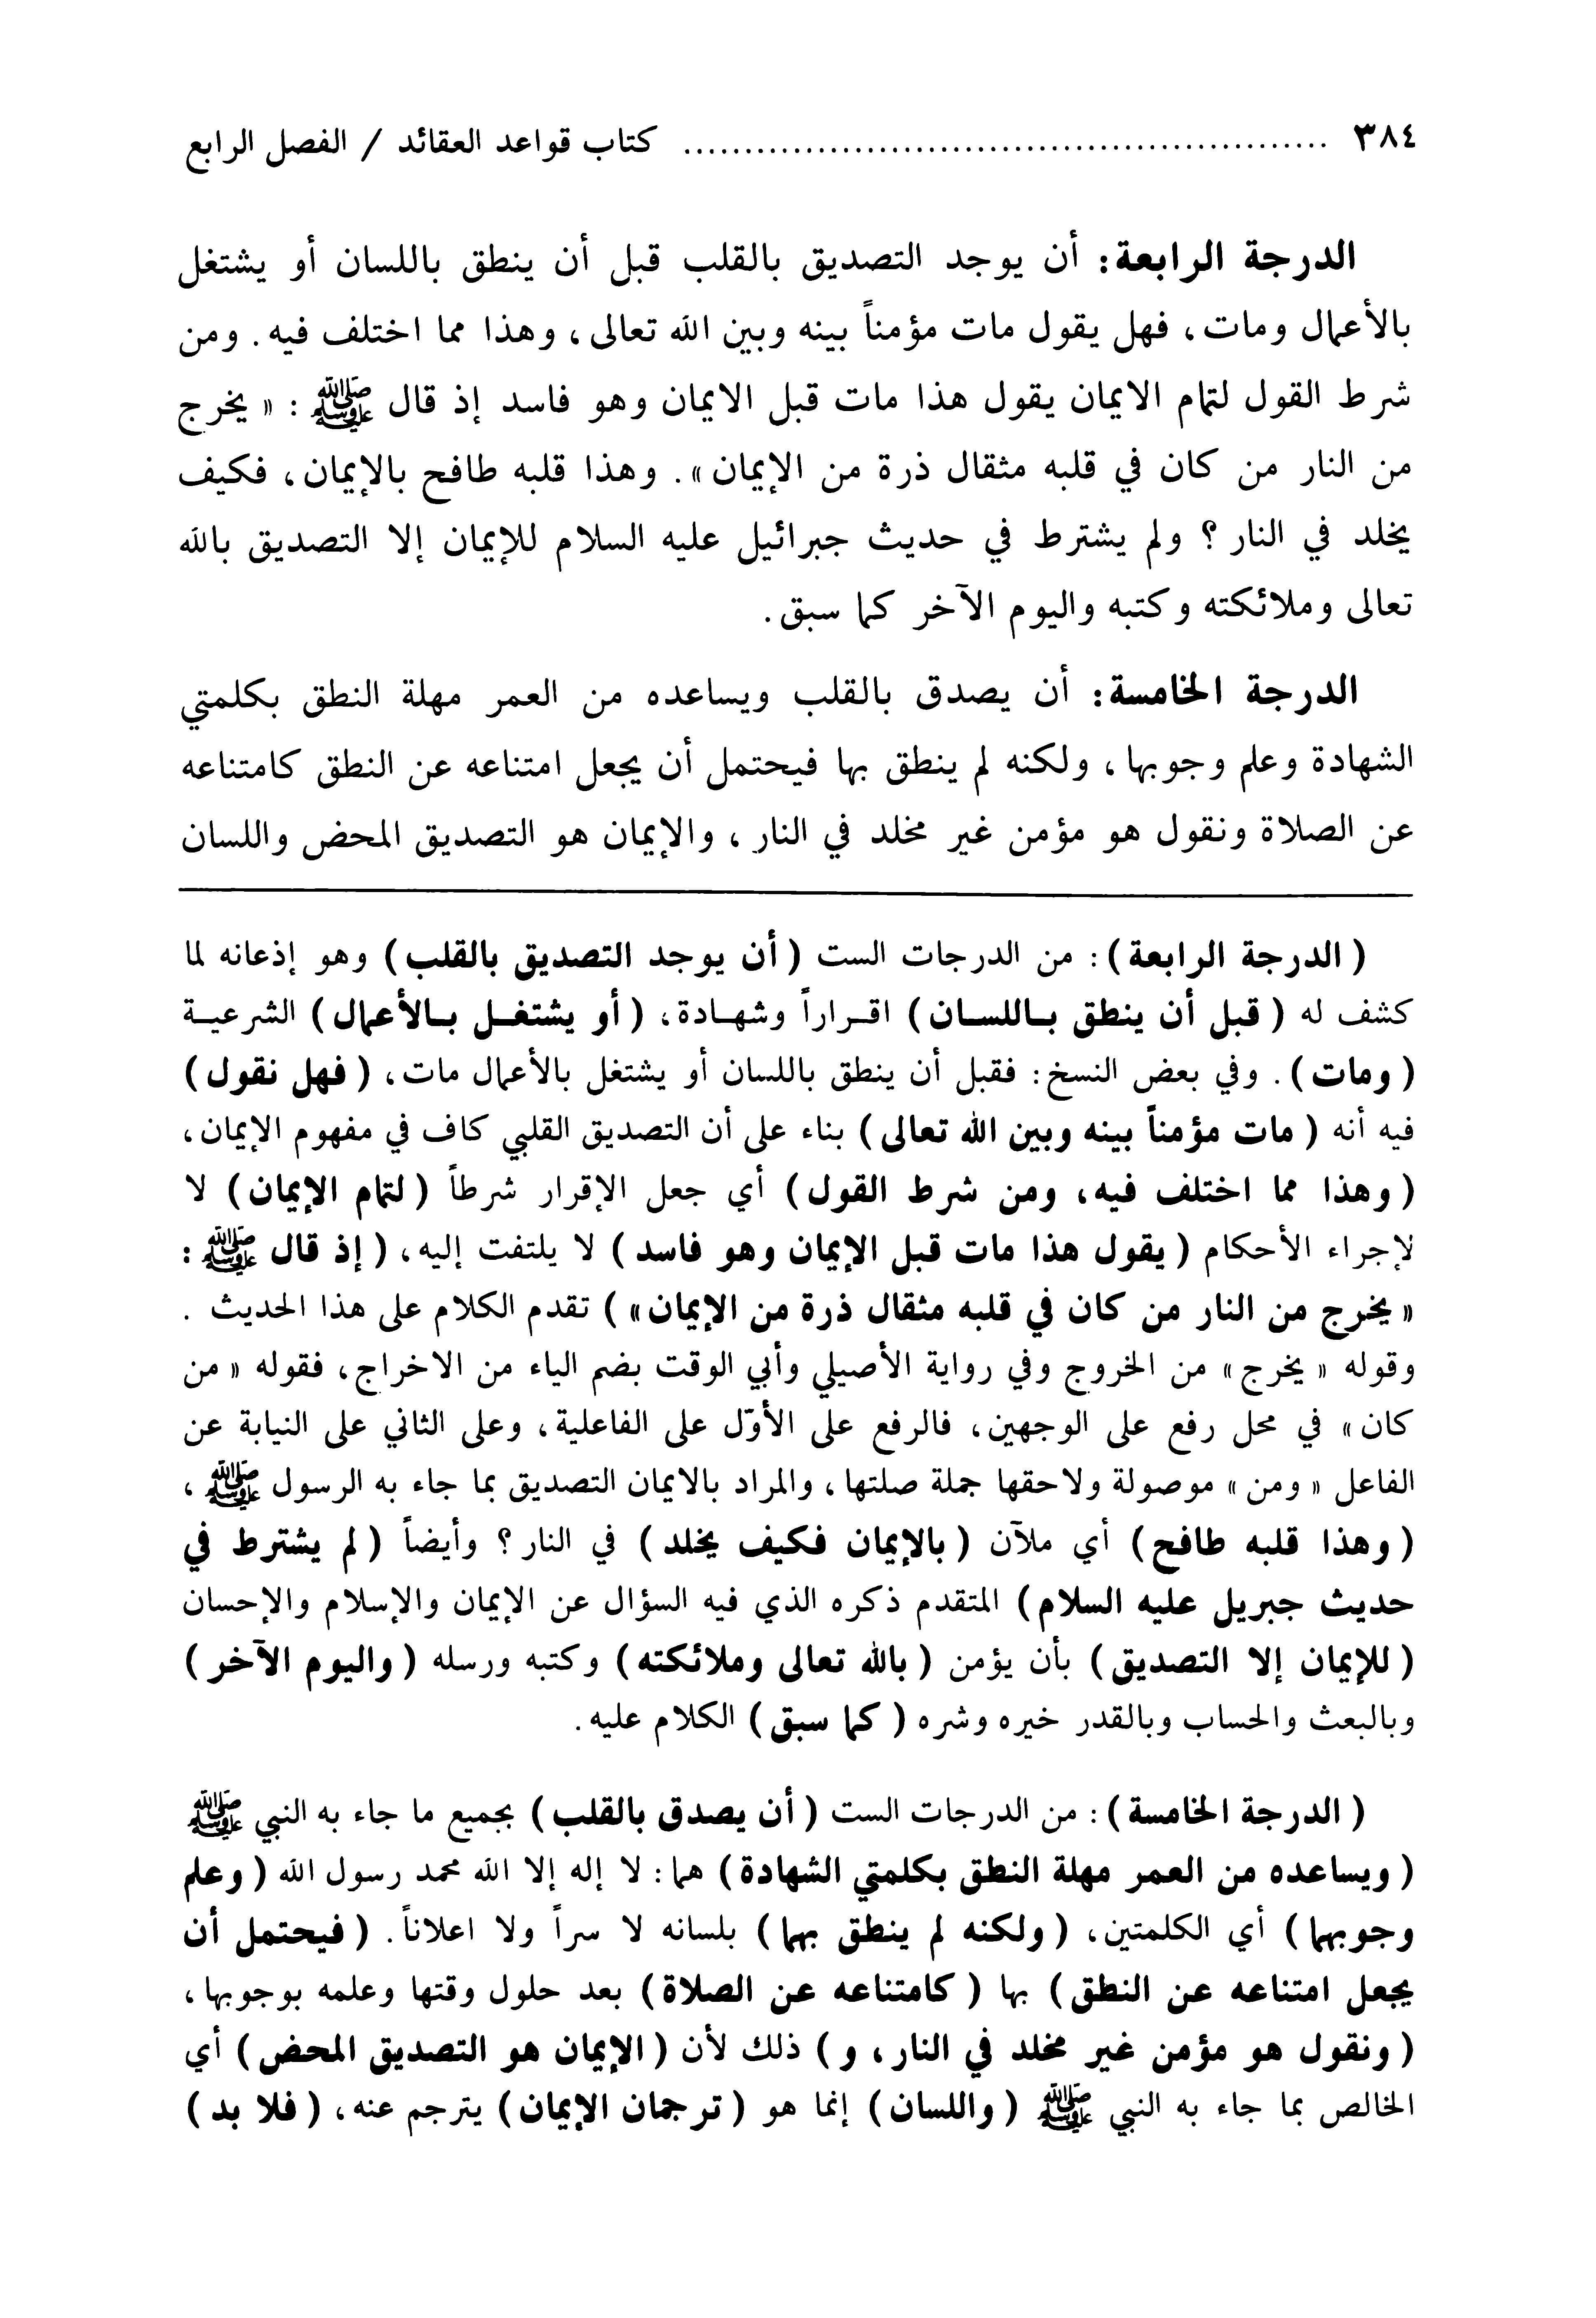 ٣٨٤ ..................................................... كتاب قواعد العقائد / الفصل الرابع
الدرجة الرابعة: أن يوجد التصديق بالقلب قبل أن ينطق باللسان أو يشتغل
بالأعمال ومات، فهل يقول مات مؤمناً بينه وبين الله تعالى، وهذا مما اختلف فيه. ومن
شرط القول لتمام الايمان يقول هذا مات قبل الايمان وهو فاسد إذ قال ﷺ: « يخرج
من النار من كان في قلبه مثقال ذرة من الإيمان ». وهذا قلبه طافح بالإيمان، فكيف
يخلد في النار؟ ولم يشترط في حديث جبرائيل عليه السلام للإيمان إلا التصديق بالله
تعالى وملائكته وكتبه واليوم الآخر كما سبق.
الدرجة الخامسة: أن يصدق بالقلب ويساعده من العمر مهلة النطق بكلمتي
الشهادة وعلم وجوبها، ولكنه لم ينطق بها فيحتمل أن يجعل امتناعه عن النطق كامتناعه
عن الصلاة ونقول هو مؤمن غير مخلد في النار، والإيمان هو التصديق المحض واللسان
( الدرجة الرابعة ): من الدرجات الست ( أن يوجد التصديق بالقلب ) وهو إذعانه لما
كشف له ( قبل أن ينطق باللسان ) اقراراً وشهادة، ( أو يشتغل بالأعمال ) الشرعية
( ومات ). وفي بعض النسخ: فقبل أن ينطق باللسان أو يشتغل بالأعمال مات، ( فهل نقول )
فيه أنه ( مات مؤمناً بينه وبين الله تعالى ) بناء على أن التصديق القلبي كاف في مفهوم الإيمان،
( وهذا مما اختلف فيه، ومن شرط القول ) أي جعل الإقرار شرطاً ( لتمام الإيمان ) لا
لإجراء الأحكام ( يقول هذا مات قبل الإيمان وهو فاسد ) لا يلتفت إليه، ( إذ قال ﷺ:
« يخرج من النار من كان في قلبه مثقال ذرة من الإيمان » ) تقدم الكلام على هذا الحديث.
وقوله « يخرج » من الخروج وفي رواية الأصيلي وأبي الوقت بضم الياء من الاخراج، فقوله « من
كان » في محل رفع على الوجهين، فالرفع على الأوّل على الفاعلية، وعلى الثاني على النيابة عن
الفاعل « ومن » موصولة ولاحقها جملة صلتها، والمراد بالايمان التصديق بما جاء به الرسول ﷺ،
( وهذا قلبه طافح ) أي ملآن ( بالإيمان فكيف يخلد ) في النار؟ وأيضاً ( لم يشترط في
حديث جبريل عليه السلام ) المتقدم ذكره الذي فيه السؤال عن الإيمان والإسلام والإحسان
( للإيمان إلا التصديق ) بأن يؤمن ( بالله تعالى وملائكته ) وكتبه ورسله ( واليوم الآخر )
وبالبعث والحساب وبالقدر خيره وشره ( كما سبق ) الكلام عليه.
( الدرجة الخامسة ): من الدرجات الست ( أن يصدق بالقلب ) بجميع ما جاء به النبي ﷺ
( ويساعده من العمر مهلة النطق بكلمتي الشهادة ) هما: لا إله إلا الله محمد رسول الله ( وعلم
وجوبهما ) أي الكلمتين، ( ولكنه لم ينطق بهما ) بلسانه لا سراً ولا اعلاناً. ( فيحتمل أن
يجعل امتناعه عن النطق ) بها ( كامتناعه عن الصلاة ) بعد حلول وقتها وعلمه بوجوبها،
( ونقول هو مؤمن غير مخلد في النار، و ) ذلك لأن ( الإيمان هو التصديق المحض ) أي
الخالص بما جاء به النبي ﷺ ( واللسان ) إنما هو ( ترجمان الإيمان ) يترجم عنه، ( فلا بد )